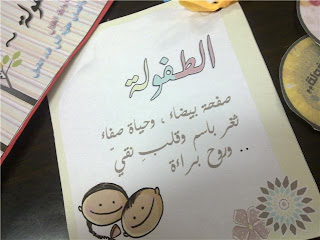 الطفولة
صفحة بيضاء ، وحياة صفاء
ثغر باسم وقلبٍ نقي
وروح براءة ..